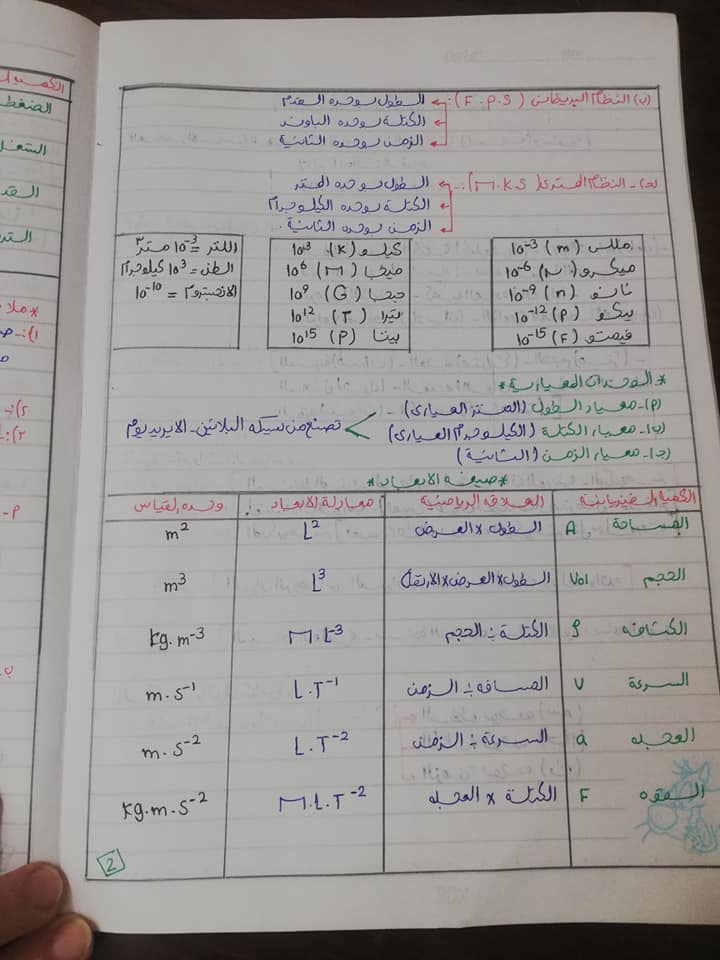 (ب) النظام البريطانى (F.P.S):
الطول بوحده القدم
الكتلة بوحده الباوند
الزمن بوحدة الثانية
(ج)- النظام المترى (M.K.S):-
الطول بوحده المتر
الكتلة بوحده الكيلوجرام
الزمن بوحدة الثانية.
مللى (m) 10-3
ميكرو (µ) 10-6
نانو (n) 10-9
بيكو (P) 10-12
فيمتو (F) 10-15
كيلو (K) 10^3
ميجا (M) 10^6
جيجا (G) 10^9
تيرا (T) 10^12
بيتا (P) 10^15
اللتر = 10-3 متر٣
الطن = 10^3 كيلوجرام
الانجستروم = 10-10
* الوحدات المعيارية *
(أ)- معيار الطول (المتر العيارى)
(ب)- معيار الكتلة (الكيلوجرام العيارى)
تصنع من سبيكه البلاتين - الايريديوم
(ج)- معيار الزمن (الثانية)
* صيغه الابعاد *
الكميه الفيزيائية العلاقه الرياضية معادلة الابعاد وحده القياس
المساحة A الطول × العرض L² m²
الحجم Vol الطول × العرض × الارتفاع L³ m³
الكثافه ρ الكتلة ÷ الحجم M.L-3 kg.m-3
السرعة V المسافه ÷ الزمن L.T-1 m.s-1
العجله a السرعة ÷ الزمن L.T-2 m.s-2
القوه F الكتلة × العجله M.L.T-2 kg.m.s-2
2
الضغط